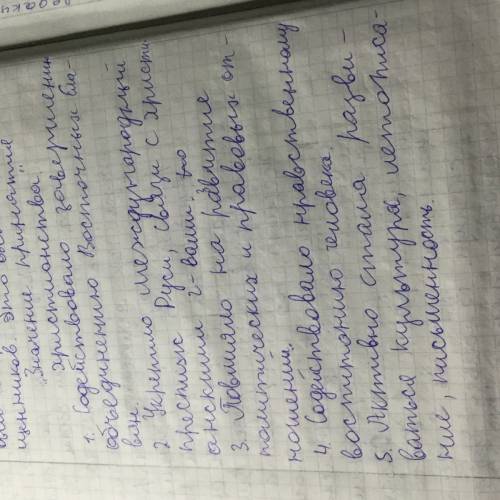 щенников. Это был
"Значение принятия
христианства"
1. Содействовало завершению
объединению Восточных сла-
вян.
2. Укрепило международный
престиж Руси, связи с христи
анскими г-вами.
3. Повлияло на развитие
политических и правовых от-
ношений.
4. Содействовало нравственному
воспитанию человека.
5. Активно стала разви-
ваться культура, летописа-
ние, письменность.